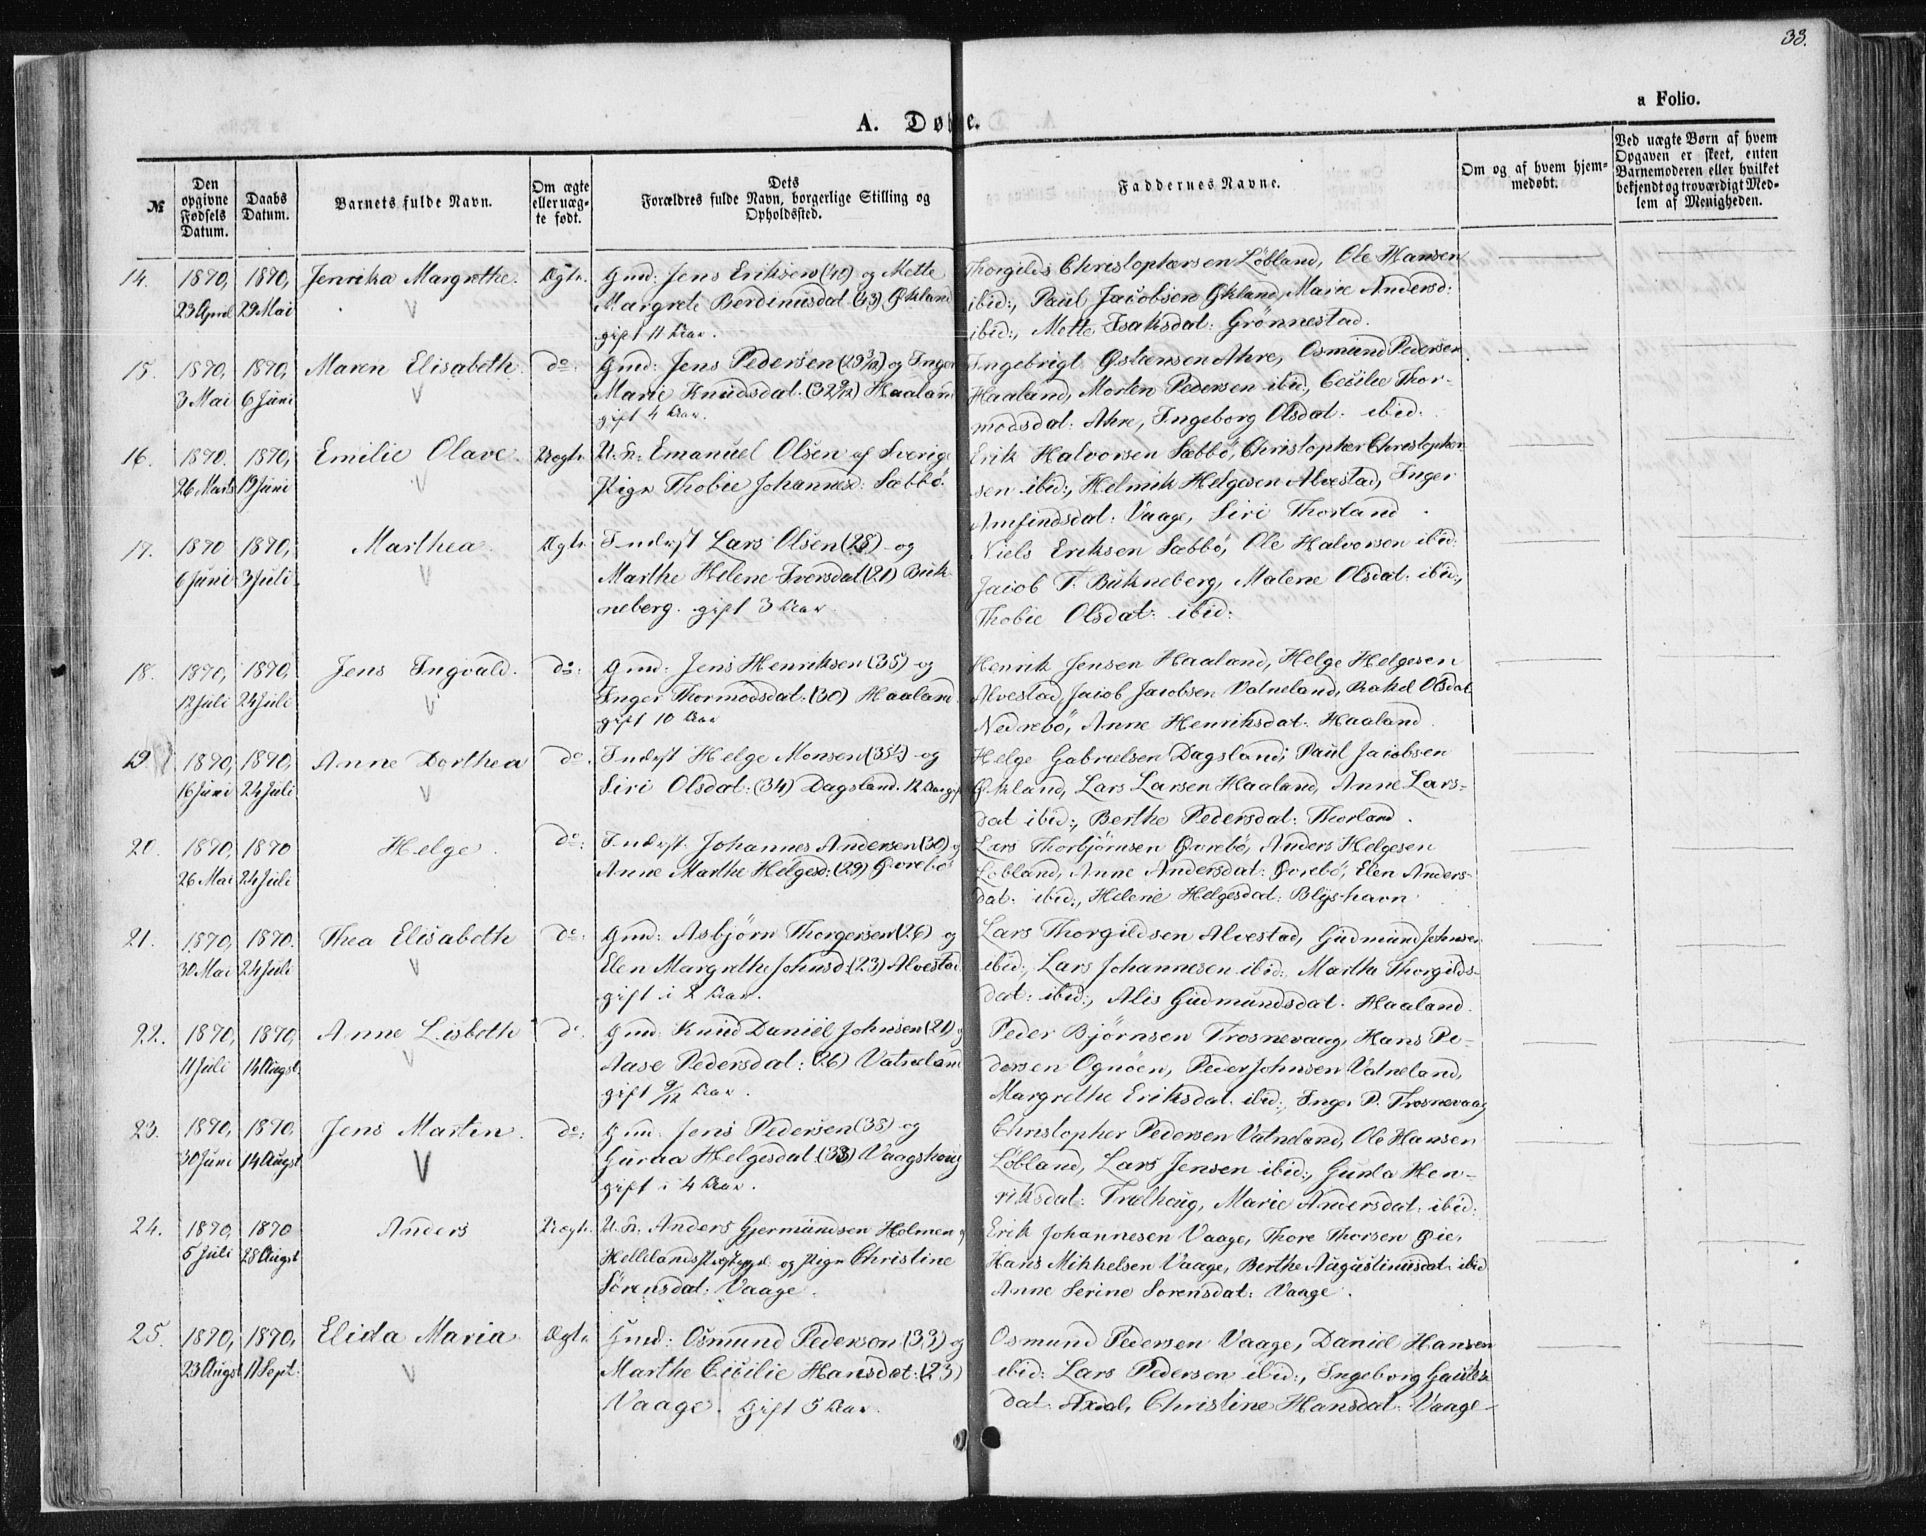 33.
a Folio.
A. Døbte.
№
Den opgivne Fødsels Datum.
Daabs Datum.
Barnets fulde Navn.
Om ægte eller uægte født.
Dets Forældres fulde Navn, borgerlige Stilling og Opholdssted.
Faddernes Navne.
Om og af hvem hjemmedøbt.
Ved uægte Børn af hvem Opgaven er skeet, enten Barnemoderen eller hvilket bekjendt og troværdigt Medlem af Menigheden.
14. 1870, 1870, Jenrika Margrethe. Ægte. Gmd: Jens Eriksen (40) og Mette Thorgilds Christophersen Løbland, Ole Hansen
23 April 29 Mai Margrete Berdinusdat (43) Økland ibid:, Paul Jacobsen Økland, Marie Andersd:
gift 11 Aar. ibid:, Mette Isaksdat: Grönnestad.
15. 1870, 1870, Maren Elisabeth. do: Gmd: Jens Pedersen (29 3/12) og Inger Ingebrigt Østensen Ahre, Osmund Pedersen
3 Mai 6 Juni Marie Knudsdat: (32 9/12) Haaland Haaland, Morten Pedersen ibid:, Cecilie Thor-
gift 4 Aar. modsdat: Ahre, Ingeborg Olsdat: ibid:
16. 1870. 1870, Emilie Olave. Uægte. U. K: Emanuel Olsen af Sverige Erik Halvorsen Sæbbö, Christopher Christopher-
26 Marts 19 Juni Pige Thobie Johannesd: Sæbbö. sen ibid:, Helmik Helgesen Alvestad, Inger
Amfindsdat: Vaage, Siri Thorland.
17. 1870 1870, Marthea. Ægte. Inderst Lars Olsen (28) og Niels Eriksen Sæbbö, Ole Halvorsen ibid:
6 Juni 3 Juli Marthe Helene Iversdat (21) Buk- Jacob T. Bukneberg, Malene Olsdat: ibid:,
neberg. gift 3 Aar. Thobie Olsdat: ibid:
18. 1870, 1870, Jens Ingvald. do: Gmd: Jens Henriksen (35) og Henrik Jensen Haaland, Helge Helgesen
12 Juli 24 Juli Inger Thormodsdat: (30) Haaland. Alvestad, Jacob Jacobsen Vatneland, Rakel Olsdat
gift 10 Aar Nedrebö, Anne Henriksdat: Haaland.
19. 1870, 1870, Anne Dorthea do. Inderst Helge Monsen (35 ) og Helge Gabrielsen Dagsland, Paul Jacobsen
16 Juni 24 Juli Siri Olsdat: (34) Dagsland. 12 Aar gift Økland, Lars Larsen Haaland, Anne Lars-
dat ibid:, Berthe Pedersdat: Thorland.
20. 1870, 1870 Helge. do: Inderst: Johannes Andersen (30) og Lars Thorbjörnsen Øvrebö, Anders Helgesen
26 Mai 24 Juli Anne Marthe Helgesd: (29) Øvrebö Löbland, Anne Andersdat: Øvrebö, Elen Anders-
dat: ibid:, Helene Helgesdat: Blyshavn
21. 1870, 1870. Thea Elisabeth do: Gmd: Asbjörn Thorgersen (26) og Lars Thorgildsen Alvestad, Gudmund Johnsen
30 Mai 24 Juli Elen Margrethe Johnsd: (23) Alvestad. ibid:, Lars Johannesen ibid:, Marthe Thorgilds-
gift i 2 Aar. dat: ibid:, Alis Gudmundsdat: Haaland.
22. 1870, 1870, Anne Lisbeth do. Gmd: Knud Daniel Johnsen (21) og Peder Björnsen Trosnevaag, Hans Pe-
11 Juli 14 Augst. Aase Pedersdat: (26) Vatneland dersen Ognöen, Peder Johnsen Vatneland,
gift 9/12 Aar. Margrethe Eriksdat: ibid:, Inger P. Trosnevaag
23. 1870, 1870, Jens Martin. do: Gmd: Jens Pedersen (38) og Christopher Pedersen Vatneland, Ole Hansen
30 Juni 14 Augst. Guraa Helgesdat: (33) Vaagshoug Löbland, Lars Jensen ibid:, Gurta Hen-
gift i 4 Aar. riksdat: Trælhoug, Marie Andersdat: ibid:
24. 1870, 1870 Anders Uægte. U. K. Anders Gjermundsen Holmen Erik Johannesen Vaage, Thore Thorsen Øie,
5 Juli 28 Augst Hellelands Præstegjeld: og Pige Christine Hans Mikkelsen Vaage, Berthe Augustinusdat: ibid
Sörensdat: Vaage. Anne Serine Sorensdat: Vaage.
25. 1870, 1870, Elida Maria Ægte. Gmd: Osmund Pederson (33) og Osmund Pedersen Vaage, Daniel Hansen
23 Augst 11 Sept: Marthe Cecilie Hansdat: (23) ibid: Lars Pedersen ibid:, Ingeborg
Vaage. Gift 5 Aar. dat: Axdal, Christine Hansdat: Vaage